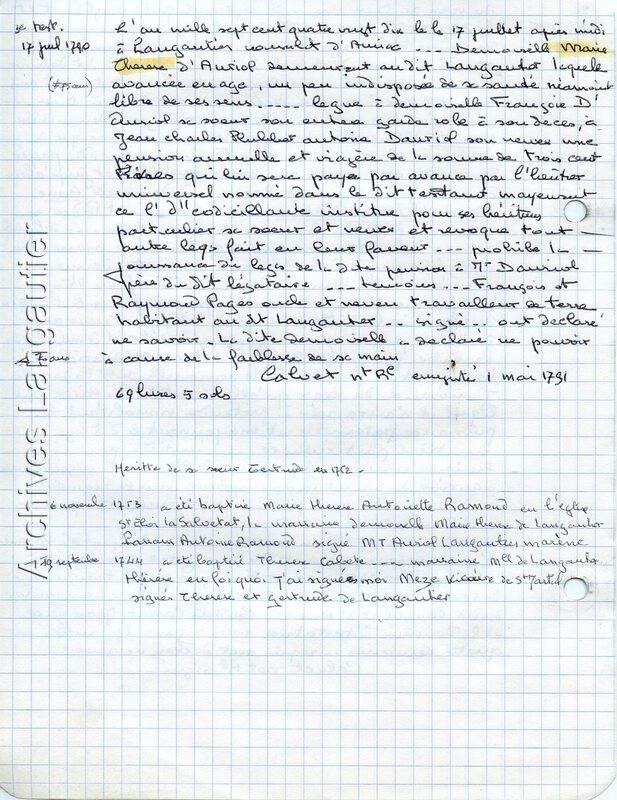 2e test.
17 juil 1790
(± 75 ans)
L'an mille sept cent quatre vingt dix le le 17 juillet après midi
à Langautier consulat d'Auriac --- Demoiselle Marie
Therese d'Auriol demeurant au dit Langautier laquelle
avancée en age, un peu indisposée de sa santé néanmoins
libre de ses sens ---- legue à demoiselle Françoise D'
Auriol sa soeur son entière garde robe à son décès, à
Jean Charles Philibert Antoine Dauriol son neveu une
pension annuelle et viagère de la somme de trois cent
livres qui lui sera payée par avance par l'héritier
universel nommé dans le dit testant moyennant
ce l d'lle codicillante institue pour ses héritiers
particulier sa soeur et neveu et revoque tout
autre legs fait en leur faveur --- prohibe la
jouissance du legs de la dite pension à Mr Dauriol
père du dit légataire ---- temoins -- François et
Raymond Pages oncle et neveu travailleur de terre
habitant au dit Langautier -- signé .. ont déclaré
ne savoir. La dite demoiselle a déclaré ne pouvoir
à cause de la faiblesse de sa main
75 ans
Calvet nt Rl enregistré 1 mai 1791
69 livres 5 sols
Archives Langautier
Heritte de sa soeur Gertrude en 1752 -
6 novembre 1753 a été baptisé Marie Therese Antoinette Ramond en l'église
St Eloi La Salvetat, la marraine demoiselle Marie Therese de Langautier
Parrain Antoine Ramond signé MT Auriol Langautier marène
19 septembre 1744 a été baptisé Therese Calvete --- marraine Mlle de Langautier
Thérèse en foi quoi j'ai signées moi Meze Vicaire de St Martial
signés Therese et gertrude de Langautier